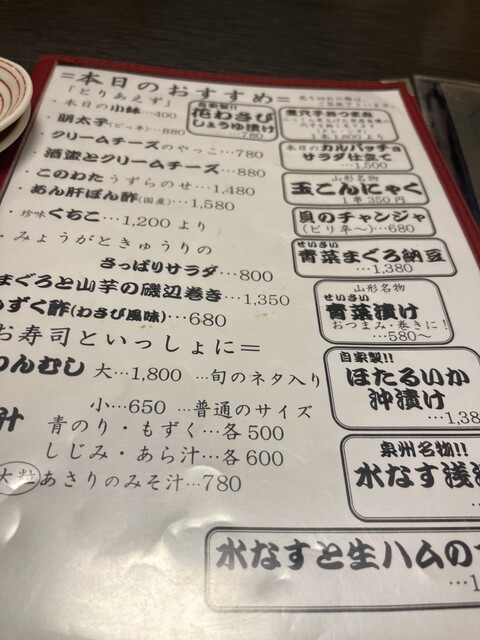 =本日のおすすめ=
「とりあえず」
・本日の小鉢…400
・明太子(ピー辛)…880
・クリームチーズのやっこ…780
・酒盗とクリームチーズ…880
・このわたうずらのせ…1,480
・あん肝ぽん酢(国産)…1,580
・珍味くちこ…1,200より
・みょうがときゅうりの
さっぱりサラダ…800
まぐろと山芋の磯辺巻き…1,350
もずく酢(わさび風味)…680
お寿司といっしょに=
わんむし 大…1,800 …旬のネタ入り
小…650 …普通のサイズ
汁
青のり・もずく…各500
しじみ・あら汁…各600
大粒 あさりのみそ汁…780
自家製!!
花わさび
しょうゆ漬け
780
売り切れの際は、
ご容赦下さいませ。
煮穴子丼つまみ
1本1,800より
本日のカルパッチョ
サラダ仕立て
…1,500
山形名物
玉こんにゃく
1串350円
貝のチャンジャ
(ピリ辛~)…680
せいさい
青菜まぐろ納豆
…1,380
山形名物
せいさい
青菜漬け
おつまみ・巻きに!
…580~
自家製!!
ほたるいか
沖漬け
…1,38
泉州名物!!
水なす浅
水なすと生ハムの
…1